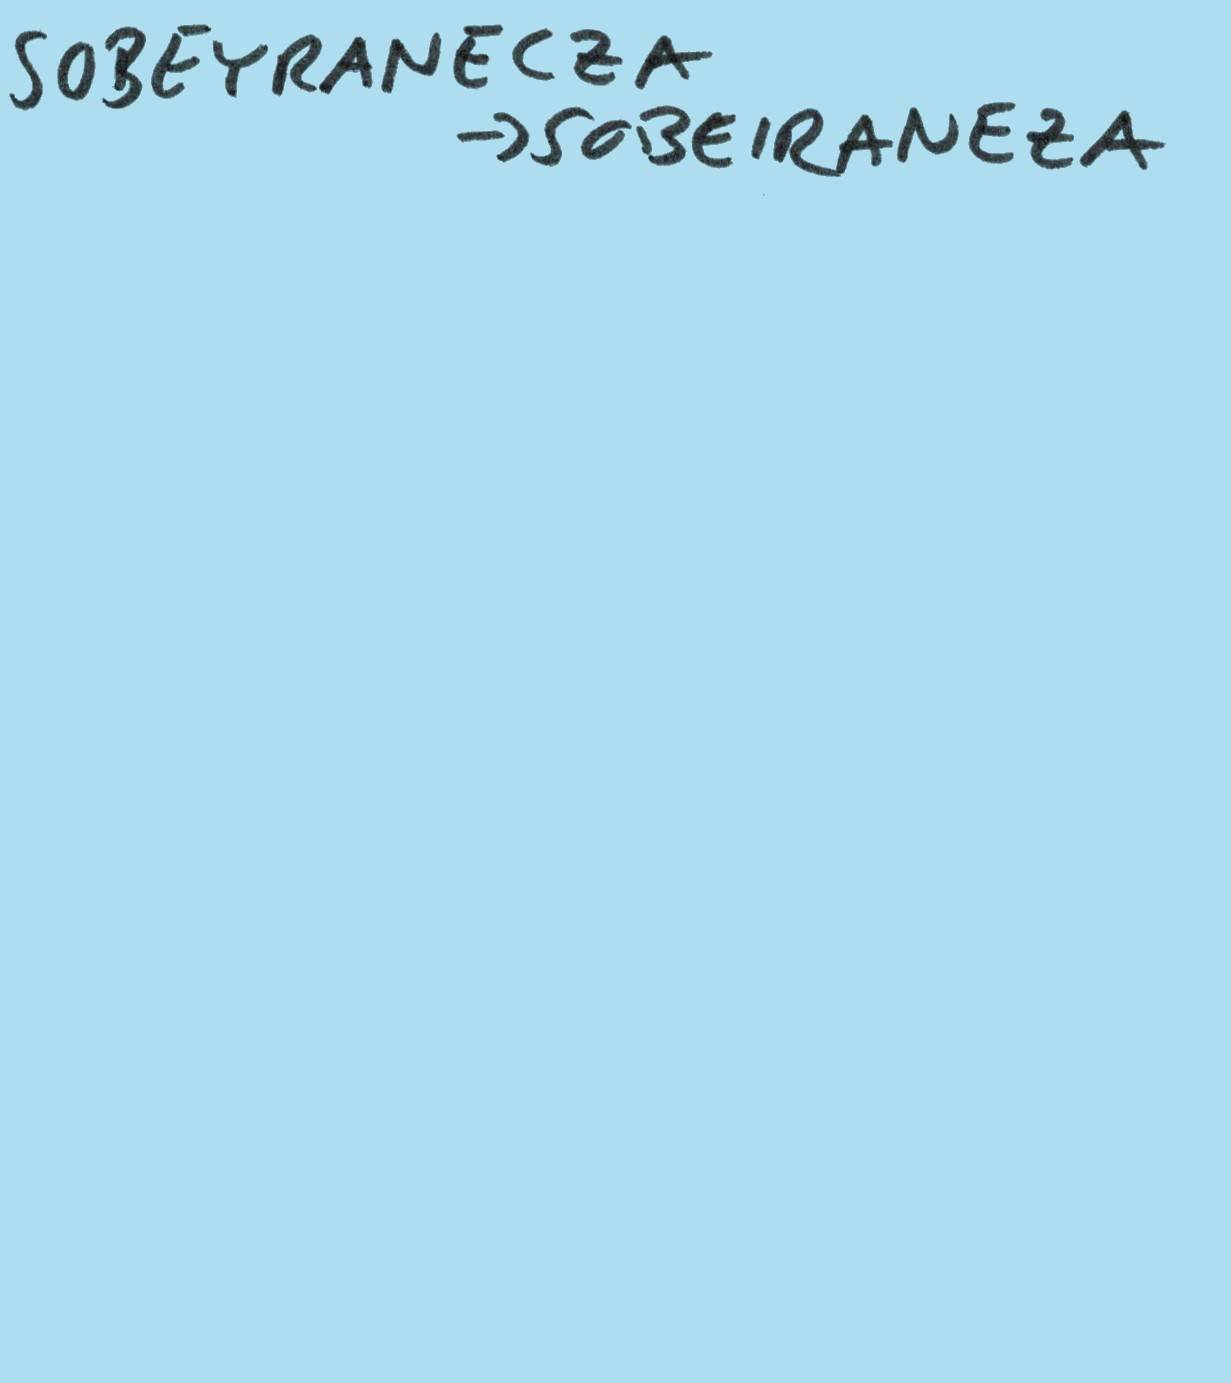 SOBEYRANECZA
→SOBEIRANEZA